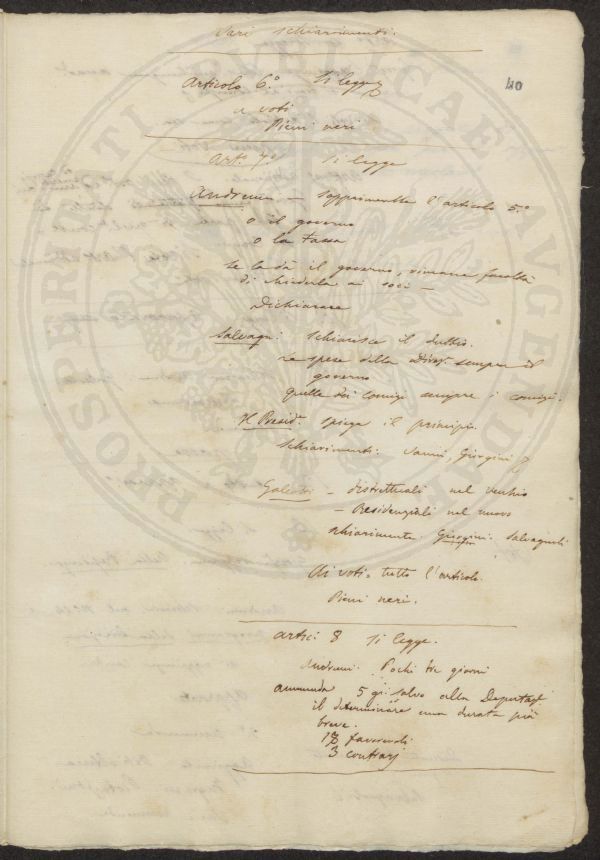 Vari schiarimenti.
40
Articolo 6.° Si legge
a voti
Pieni neri
Art. 7.° Si legge
Andreucci — Sopprimerebbe l'articolo 5.°
o il governo
o la Tassa
Se la dà il governo, rimane facoltà
di chiederla ai soci —
Dichiarare
Salvagn: Schiarisce il dubbio.
Le spese della Divis. sempre il
governo
quelle dei comizi sempre i comizi.
Il Presid.e spiega il principio.
Schiarimenti: Vanni, Giorgini
Galeotti – distrettuali nel vecchio
– Residenziali nel nuovo
schiarimento. Giorgini. Salvagnoli
Ai voti. tutto l'articolo.
Pieni neri.
8 Si legge.
Pochi tre giorni
ammenda 5 gi: salvo alla Deputaz.
il determinare una durata più
breve.
18 favorevoli
3 contrarj
PROSPERITATI PVBLICAE AVGENDAE